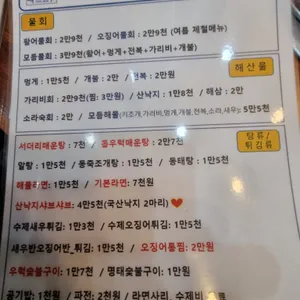 물회
황어물회 : 2만9천 / 오징어물회 : 2만9천 (여름 제철메뉴)
모듬물회 : 3만9천(황어+멍게+전복+가리비+개불)
해산물
멍게 : 1만5천 / 개불 : 2만 / 전복 : 2만원
가리비회 : 2만9천(찜 : 3만원) / 산낙지 : 1만8천 / 해삼 : 2만
소라숙회 : 2만 / 모듬해물(키조개,가리비,멍게,개불,전복,소라,새우): 5만5천
탕류/
튀김류
서더리매운탕 : 7천 / 동우럭매운탕 : 2만7천
알탕 : 1만5천 / 동죽조개탕 : 1만5천 / 동태탕 : 1만5천
해물라면 : 1만5천 / 기본라면 : 7천원
산낙지샤브샤브 : 4만5천(국산낙지 2마리)
수제새우튀김 : 1만3천 / 수제오징어튀김 : 1만5천
새우반오징어반_튀김 : 1만5천 / 오징어통찜 : 2만원
우럭숯불구이 : 1만7천 / 명태숯불구이 : 1만원
공기밥 : 1천원 / 파전 : 2만원 / 라면사리, 수제비